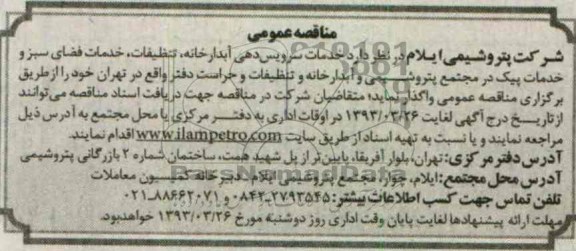 مناقصه عمومی
شرکت پتروشیمی ایلام در نظر دارد خدمات سرویس‌دهی آبدارخانه، تنظیفات، خدمات فضای سبز و
خدمات پیک در مجتمع پتروشیمی و آبدارخانه و تنظیفات و حراست دفتر واقع در تهران خود را از طریق
برگزاری مناقصه عمومی واگذار نماید؛ متقاضیان شرکت در مناقصه جهت دریافت اسناد مناقصه می‌توانند
از تاریخ درج آگهی لغایت ۱۳۹۳/۰۳/۲۶ در اوقات اداری به دفتر مرکزی یا محل مجتمع به آدرس ذیل
مراجعه نمایند و یا نسبت به تهیه اسناد از طریق سایت www.ilampetro.com اقدام نمایند.
آدرس دفتر مرکزی: تهران، بلوار آفریقا، پایین‌تر از پل شهید همت، ساختمان شماره ۲ بازرگانی پتروشیمی
آدرس محل مجتمع: ایلام، چوار، مجتمع پتروشیمی ایلام، دبیرخانه کمیسیون معاملات
تلفن تماس جهت کسب اطلاعات بیشتر: ۲۷۹۳۵۴۵-۰۸۴۲ و ۸۸۶۶۲۰۷۱-۰۲۱
مهلت ارائه پیشنهادها لغایت پایان وقت اداری روز دوشنبه مورخ ۱۳۹۳/۰۳/۲۶ خواهد بود.